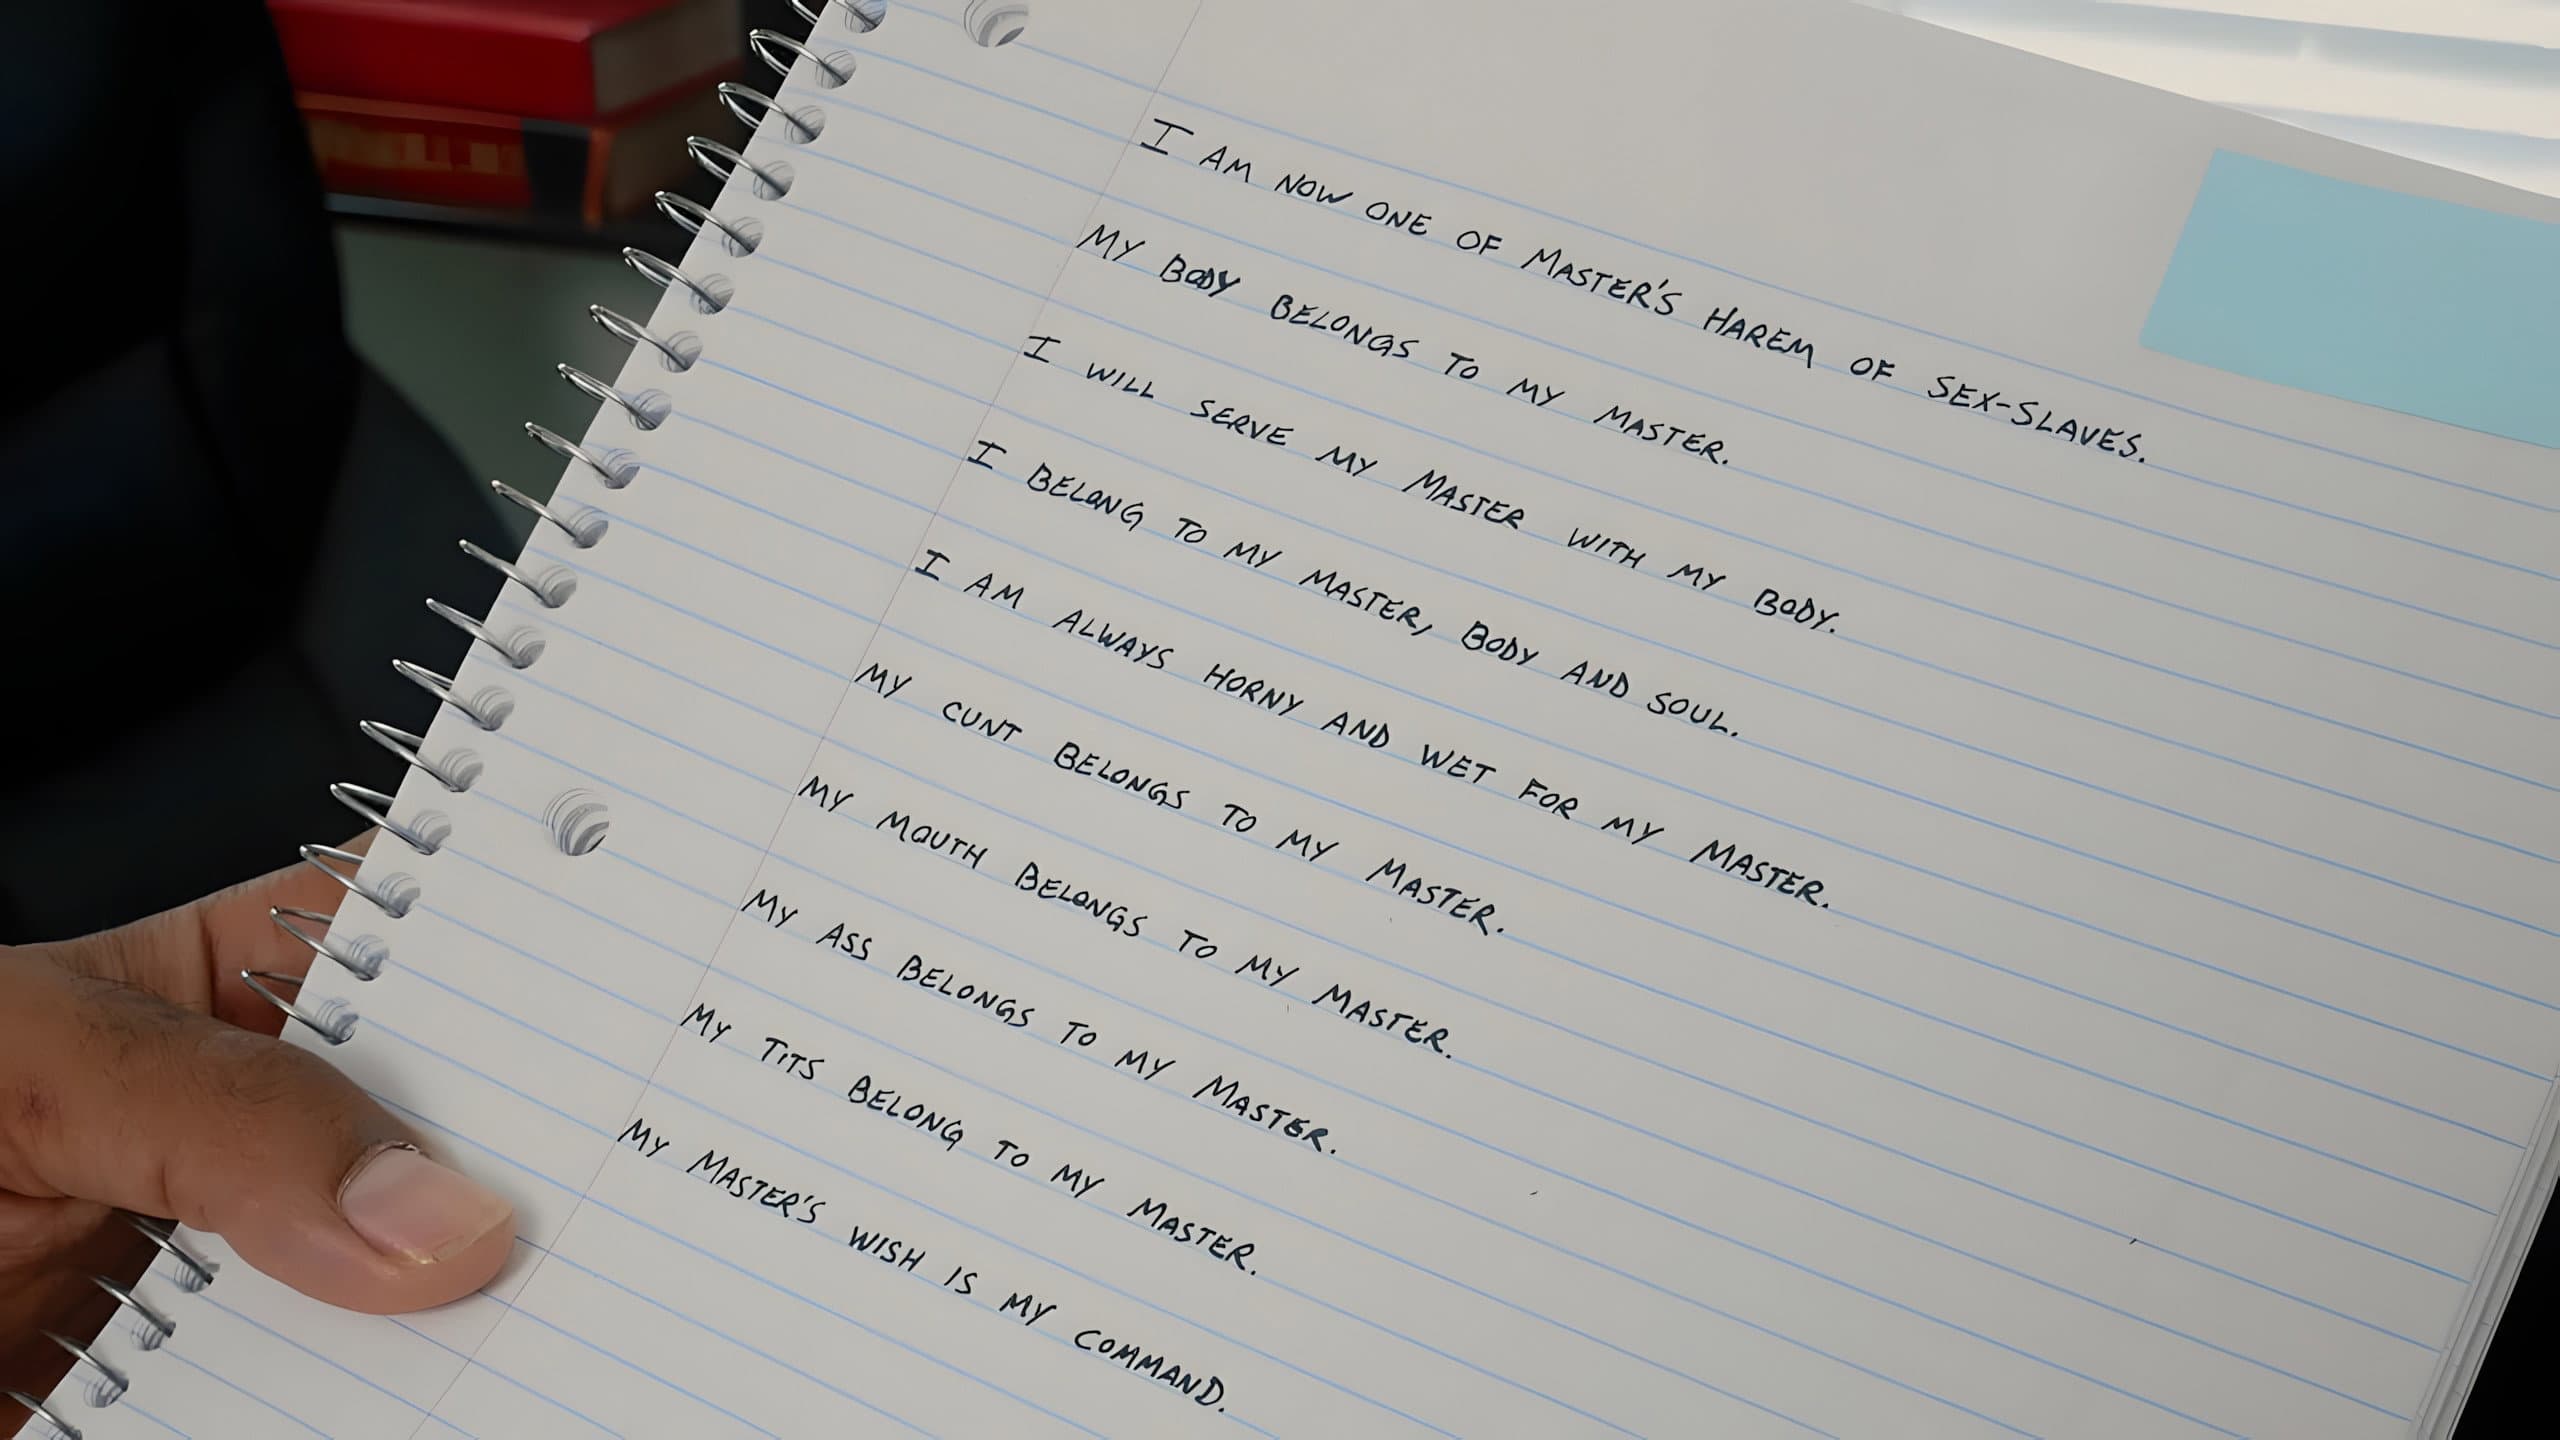 I AM NOW ONE OF MASTER'S HAREM OF SEX-SLAVES.
MY BODY BELONGS TO MY MASTER.
I WILL SERVE MY MASTER WITH MY BODY.
I BELONG TO MY MASTER, BODY AND SOUL.
I AM ALWAYS HORNY AND WET FOR MY MASTER.
MY CUNT BELONGS TO MY MASTER.
MY MOUTH BELONGS TO MY MASTER.
MY ASS BELONGS TO MY MASTER.
MY TITS BELONG TO MY MASTER.
MY MASTER'S WISH IS MY COMMAND.